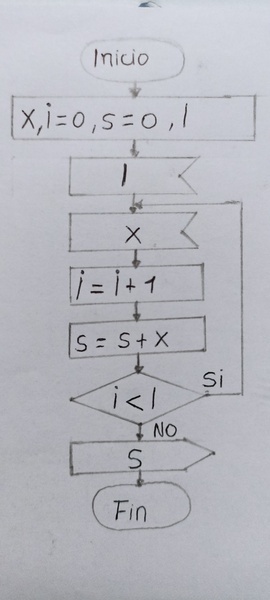 Inicio
X, i=0, s=0, l
l
X
i = i+1
s = s+x
i < l
Si
NO
S
Fin